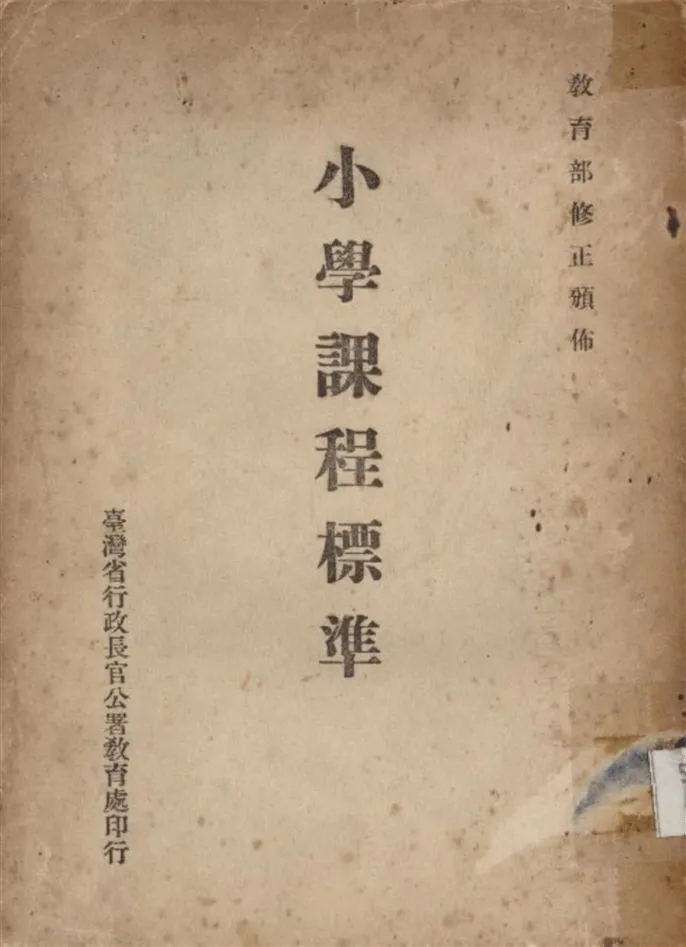 教育部修正頒佈
小學課程標準
臺灣省行政長官公署教育處印行